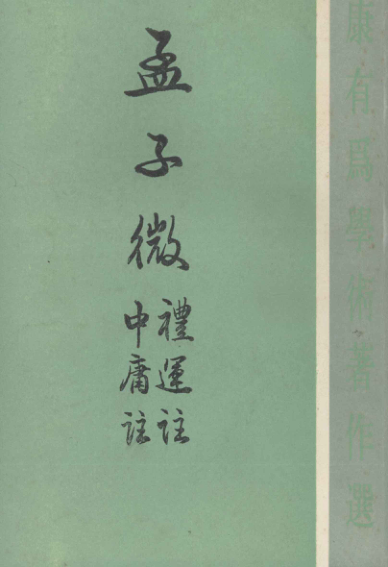 康有爲學術著作選
孟子微
禮運註
中庸註